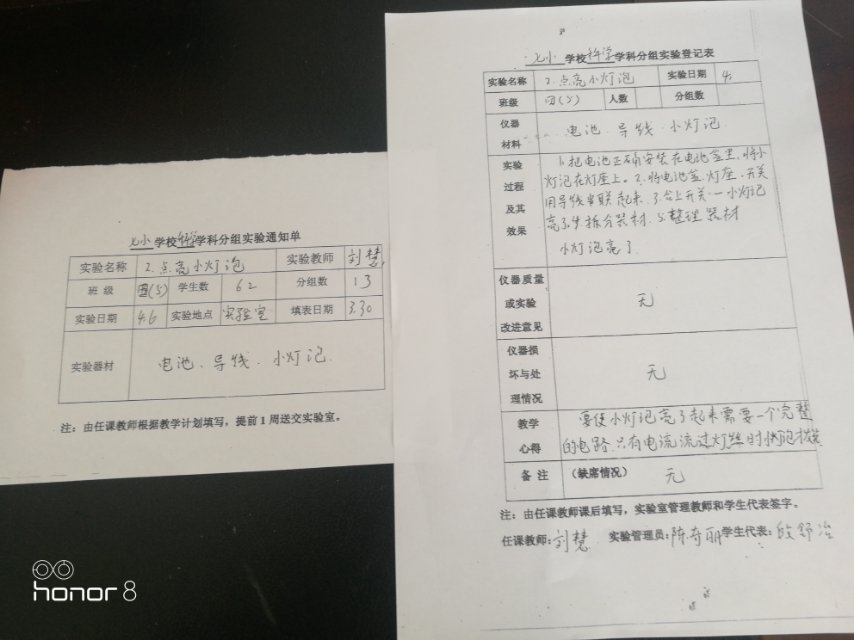 七小学校科学学科分组实验通知单
实验名称 2.点亮小灯泡 实验教师 刘慧
班级 四(5) 学生数 62 分组数 13
实验日期 4.6 实验地点 实验室 填表日期 3.30
实验器材 电池、导线、小灯泡
注：由任课教师根据教学计划填写，提前1周送交实验室。
七小学校科学学科分组实验登记表
实验名称 2.点亮小灯泡 实验日期 4.
班级 四(5) 人数 分组数
仪器材料 电池、导线、小灯泡
实验过程及其效果
1.把电池正确安装在电池盒里,将小
灯泡在灯座上。2.将电池盒、灯座、开关
用导线串联起来.3.合上开关,小灯泡
亮了.4.拆分器材.5.整理器材
小灯泡亮了
仪器质量或实验改进意见 无
仪器损坏与处理情况 无
教学心得
要使小灯泡亮了起来需要一个完整
的电路.只有电流流过灯丝时小灯泡才
备注 (缺席情况) 无
注：由任课教师课后填写，实验室管理教师和学生代表签字。
任课教师:刘慧 实验管理员:陈奇丽 学生代表:
honor 8